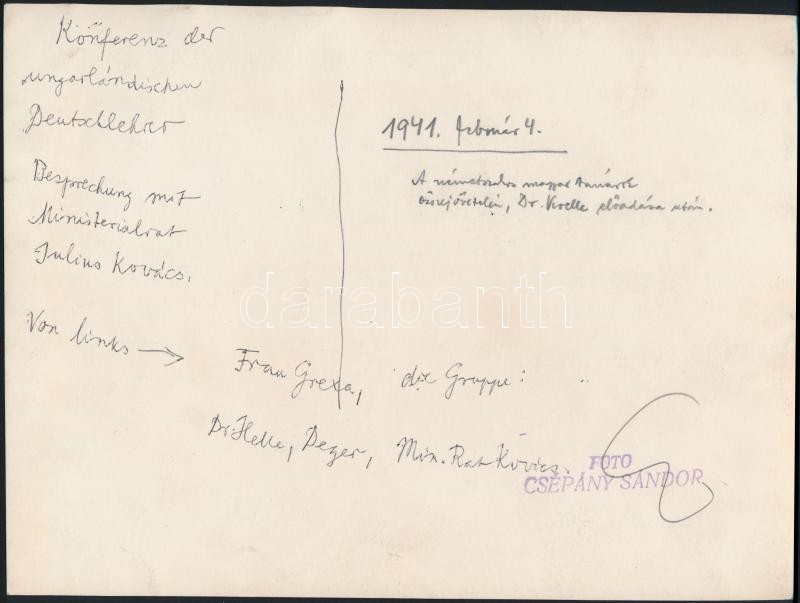 Konferenz der
ungarländischen
Deutschlehrer
Besprechung mit
Ministerialrat
Julius Kovács.
Von links →
Frau Grexa, die Gruppe:
Dr. Helle, Dezer, Min. Rat Kovács.
1941. február 4.
A németszakos magyar tanárok
összejövetelén, Dr. előadása után.
darabanth
FOTO
CSÉPÁNY SÁNDOR